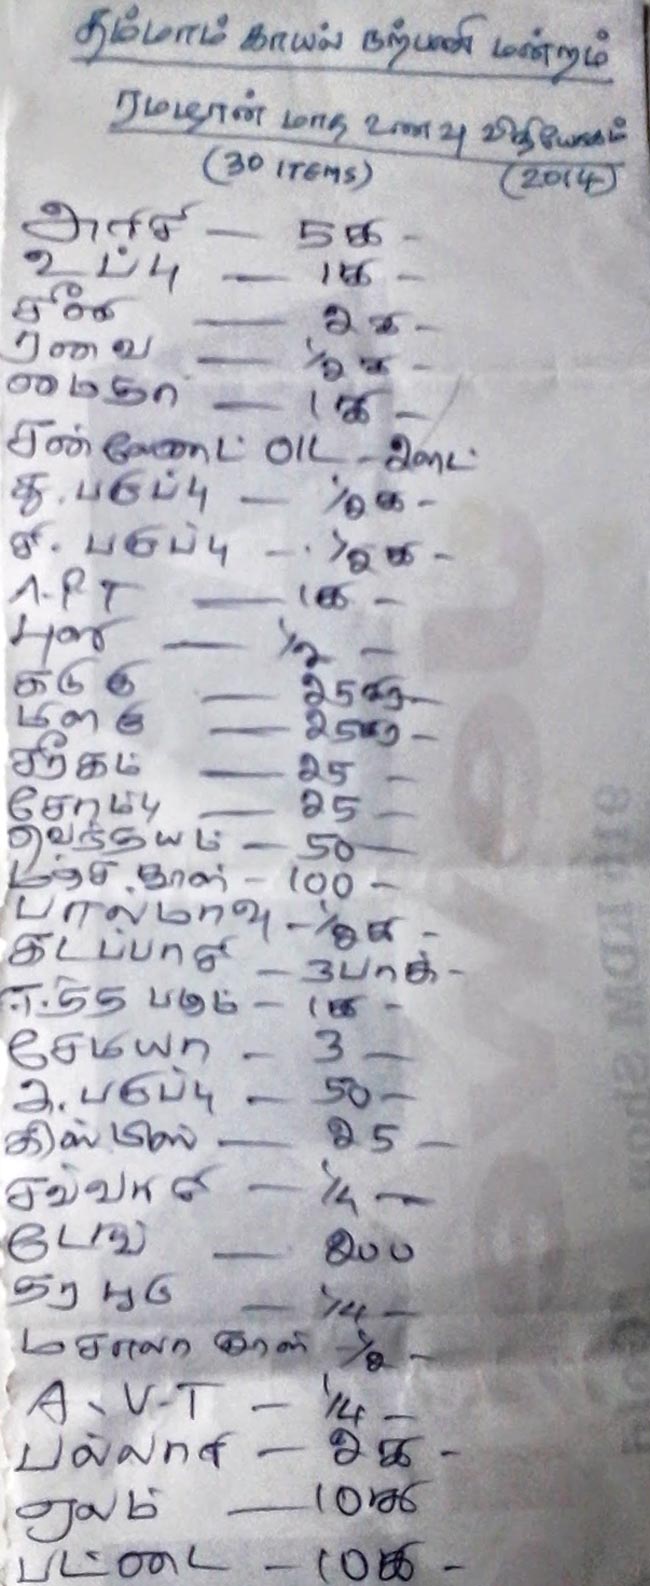 தம்மாம் காயல் நற்பணி மன்றம்
ரமழான் மாத உணவு விநியோகம்
(30 ITEMS) (2014)
அரிசி — 5கி -
உப்பு — 1கி -
சீனி — 2கி -
ரவை — 1/2கி -
மைதா — 1கி -
சன்லேண்ட் OIL - 2லிட்
து. பருப்பு — 1/2கி -
சி. பருப்பு - 1/2கி -
1கி -
புளி — 1/2 -
கடுகு — 25கிரா -
மிளகு — 25கிரா -
சீரகம் — 25 -
சோம்பு — 25 -
வெந்தயம் - 50 -
மஞ்ச.தூள் - 100 -
பால்மாவு - 1/2கி -
கடப்பாசி - 3பாக் -
ஈ.த்த பழம் - 1கி -
சேமியா - 3 -
உ. பருப்பு - 50 -
கிஸ்மிஸ் — 25 -
சவ்வரிசி - 1/4 -
டேங் — 200
- 1/4 -
மசாலா தூள் - 1/2 -
A.V.T - 1/4 -
பல்லாரி - 2கி -
ஏலம் — 10கி
பட்டை - 10கி -